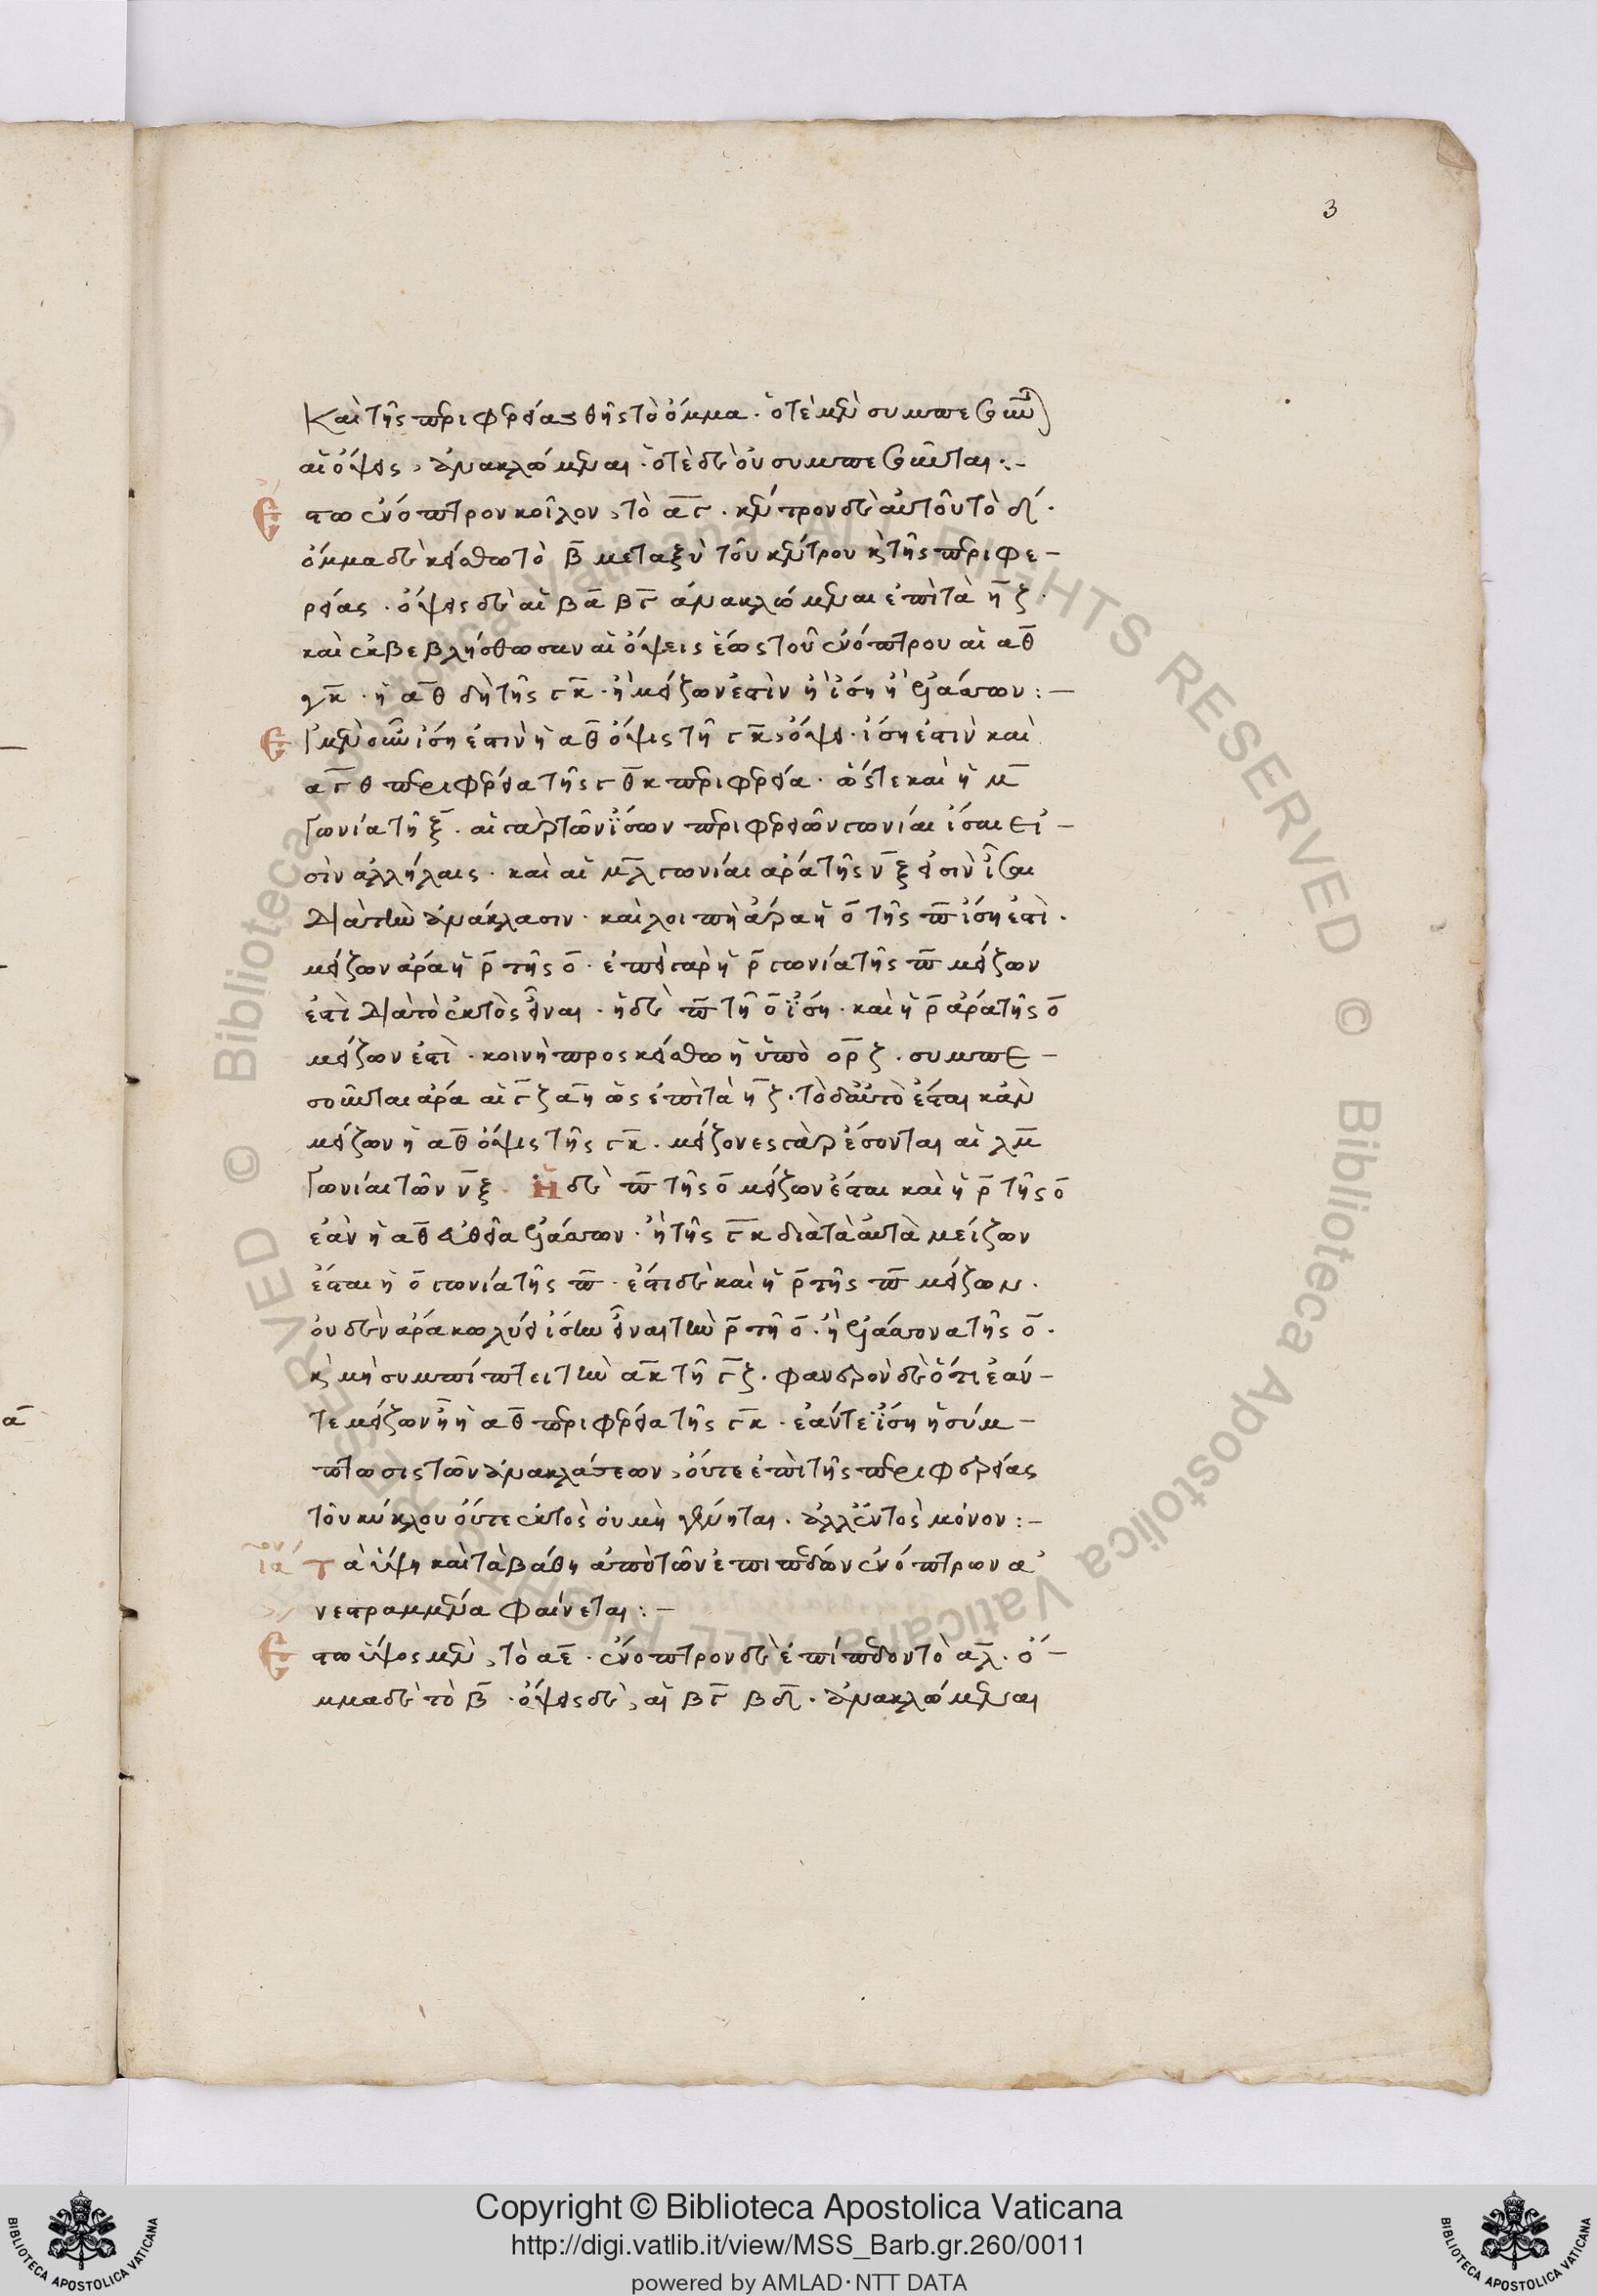 3
Καὶ τῆς περιφερείας θῇς τὸ ὄμμα· ὁτὲ μὲν συμπεσοῦν(ται)
αἱ ὄψεις, ἀνακλώμεναι· ὁτὲ δὲ οὐ συμπεσοῦνται:-
Ἔστω ἐνόπτρον κοῖλον, τὸ αγ· κέντρον δὲ αὐτοῦ τὸ δ·
ὄμμα δὲ κείσθω τὸ β μεταξὺ τοῦ κέντρου κ(αὶ) τῆς περιφε-
ρείας· ὄψεις δὲ αἱ βα βγ ἀνακλώμεναι ἐπὶ τὰ η ζ·
καὶ ἐκβεβλήσθωσαν αἱ ὄψεις ἕως τοῦ ἐνόπτρου αἱ αθ
γκ· ἡ αθ δὴ τῆς γκ· ἢ μείζων ἐστὶν ἢ ἴση ἢ ἐλάσσων:-
Εἰ μὲν οὖν ἴση ἐστὶν ἡ αθ ὄψις τῇ γκ, ὄψει· ἴση ἐστὶν καὶ
αγθ περιφέρεια τῆς γθκ περιφερεία· ὥστε καὶ ἡ μ
γωνία τῇ ξ· αἱ γὰρ τῶν ἴσων περιφερειῶν γωνίαι ἴσαι εἰ-
σὶν ἀλλήλαις· καὶ αἱ μλ γωνίαι ἄρα τῆς νξ εἰσὶν ἴσαι
διὰ τὴν ἀνάκλασιν· καὶ λοιπὴ ἄρα ἡ ο τῆς π ἴση ἐστί·
μείζων ἄρα ἡ ρ τῆς ο· ἐπεὶ γὰρ ἡ ρ γωνία τῆς π μείζων
ἐστὶ διὰ τὸ ἐκτὸς εἶναι· ἡ δὲ π τῇ ο ἴση· καὶ ἡ ρ ἄρα τῆς ο
μείζων ἐστί· κοινὴ προσκείσθω ἡ ὑπὸ ορζ· συμπε-
σοῦνται ἄρα αἱ γζ αη ὡς ἐπὶ τὰ η ζ· τὸ δ' αὐτὸ ἔσται κἂν
μείζων ἡ αθ ὄψις τῆς γκ· μείζονες γὰρ ἔσονται αἱ λμ
γωνίαι τῶν νξ· Ἡ δὲ π τῆς ο μείζων ἔσται καὶ ἡ ρ τῆς ο
ἐὰν ἡ αθ εὐθεῖα ἐλάσσων· ἢ τῆς γκ διὰ τὰ αὐτὰ μείζων
ἔσται ἡ ο γωνία τῆς π· ἔστι δὲ καὶ ἡ ρ τῆς π μείζων·
οὐδὲν ἄρα κωλύει ἴσην εἶναι τὴν ρ τῇ ο· ἢ ἐλάσσονα τῆς ο·
κ(αὶ) μὴ συμπίπτει τὴν ακ τῇ γζ· φανερὸν δὲ ὅτι ἐάν-
τε μείζων ᾖ ἡ αθ περιφέρεια τῆς γκ· ἐάντε ἴση ἡ σύμ-
πτωσις τῶν ἀνακλάσεων, οὔτε ἐπὶ τῆς περιφερείας
τοῦ κύκλου οὔτε ἐκτὸς οὐ μὴ γένηται· ἀλλ' ἐντὸς μόνον:-
ια Τὰ ὕψη καὶ τὰ βάθη ἀπὸ τῶν ἐπιπέδων ἐνόπτρων ἀ
νεστραμμένα φαίνεται:-
Ἔστω ὕψος μὲν, τὸ αε· ἐνόπτρον δὲ ἐπίπεδον τὸ αλ· ὄ-
μμα δὲ τὸ β· ὄψεις δὲ, αἱ βγ βδ· ἀνακλώμεναι
α
Copyright © Biblioteca Apostolica Vaticana
http://digi.vatlib.it/view/MSS_Barb.gr.260/0011
powered by AMLAD·NTT DATA
BIBLIOTECA APOSTOLICA VATICANA
BIBLIOTECA APOSTOLICA VATICANA